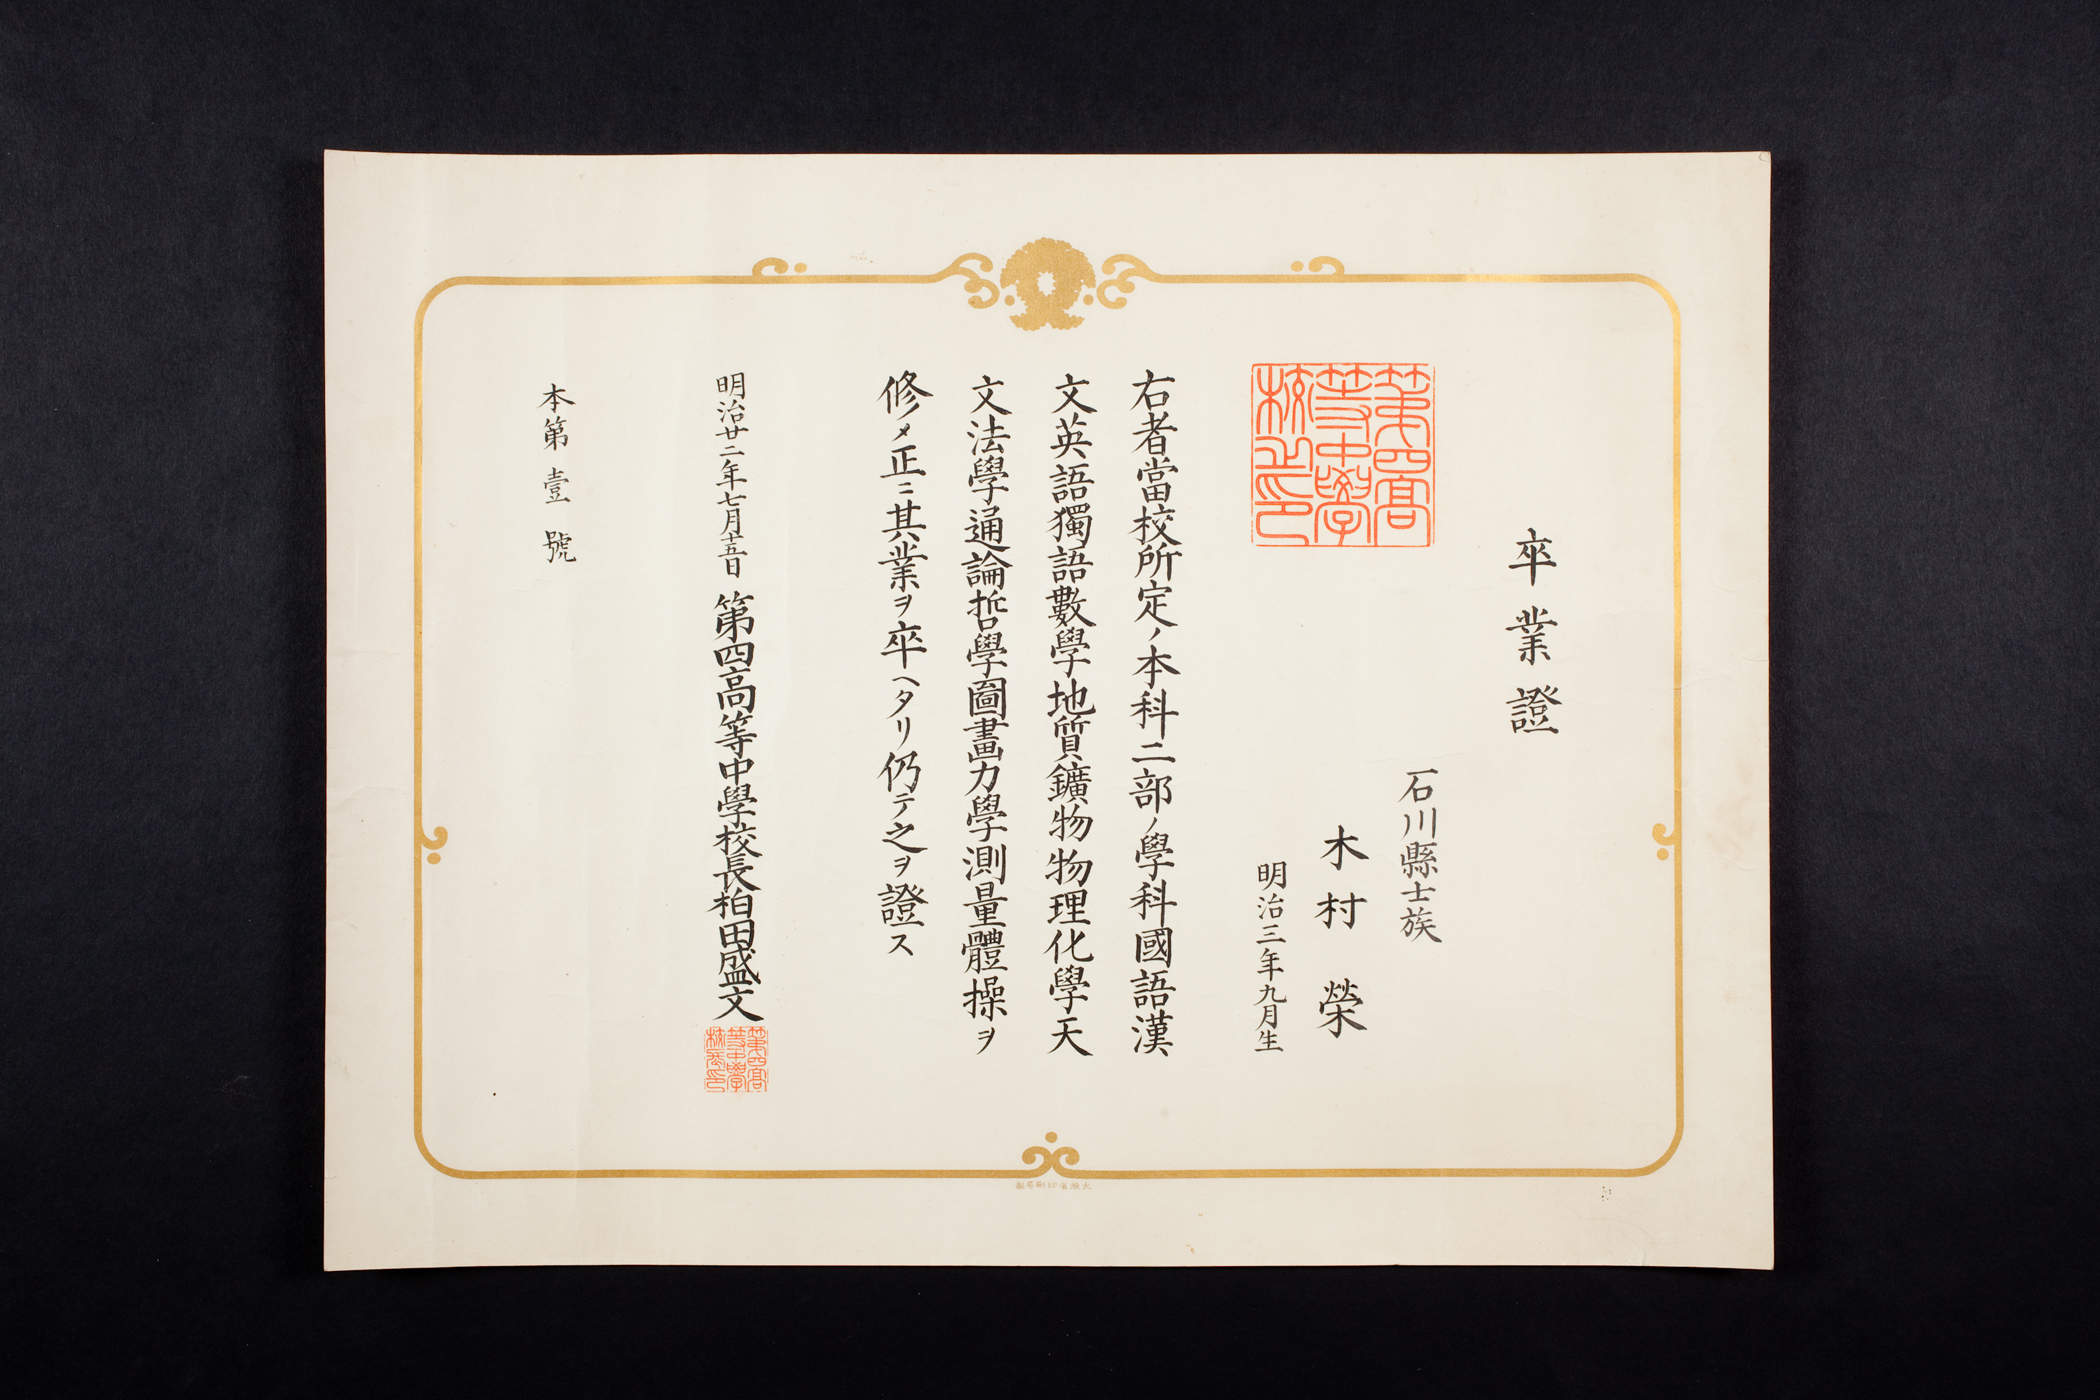 卒業證
石川縣士族
木村榮
明治三年九月生
第四高
等中學
校之印
右者當校所定ノ本科二部ノ學科國語漢
文英語獨語數學地質鑛物物理化學天
文法學通論哲學圖畫力學測量體操ヲ
修メ正ニ其業ヲ卒ヘタリ仍テ之ヲ證ス
明治廿二年七月十五日 第四高等中學校長柏田盛文
第四高
等中學
校長印
本第壹號
大藏省印刷局製